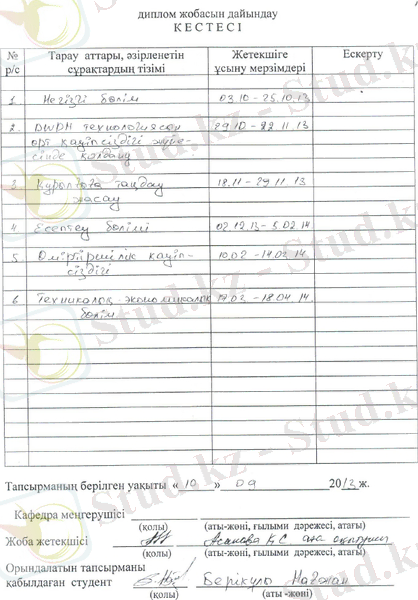 диплом жобасын дайындау
К Е С Т Е С І
№ р/с
Тарау аттары, әзірленетін сұрақтардың тізімі
Жетекшіге ұсыну мерзімдері
Ескерту
1. Негізгі бөлім 03.10 - 25.10.13
2. DWDM технологиясын 29.10 - 22.11.13
өрт қауіпсіздігі жүйе-
сінде қолдану
3 Құрылғыға таңдау 18.11 - 29.11.13
жасау
4 Есептеу бөлімі 02.12.13 - 5.02.14
5 Өміртіршілік қауіп- 10.02 - 14.03.14
сіздігі
6 Техникалық-экономикалық 17.03. - 18.04.14
бөлім
Тапсырманың берілген уақыты « 10 » 09 2013 ж.
Кафедра меңгерушісі
(қолы) (аты-жөні, ғылыми дәрежесі, атағы)
Жоба жетекшісі Қ.С. аға оқытушы
(қолы) (аты-жөні, ғылыми дәрежесі, атағы)
Орындалатын тапсырманы
қабылдаған студент
(қолы) (аты -жөні)
Stud.kz - Stud.kz